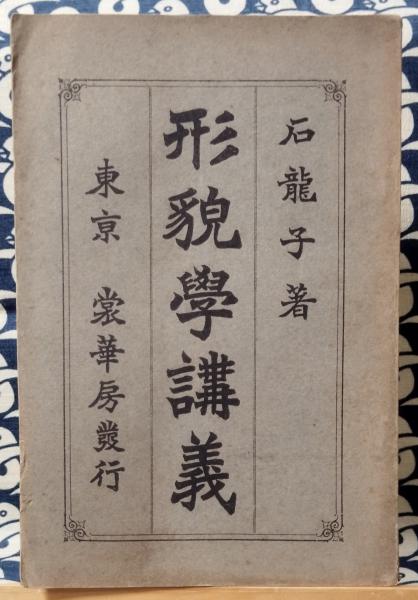 石龍子著
形貌學講義
東亰 裳華房發行